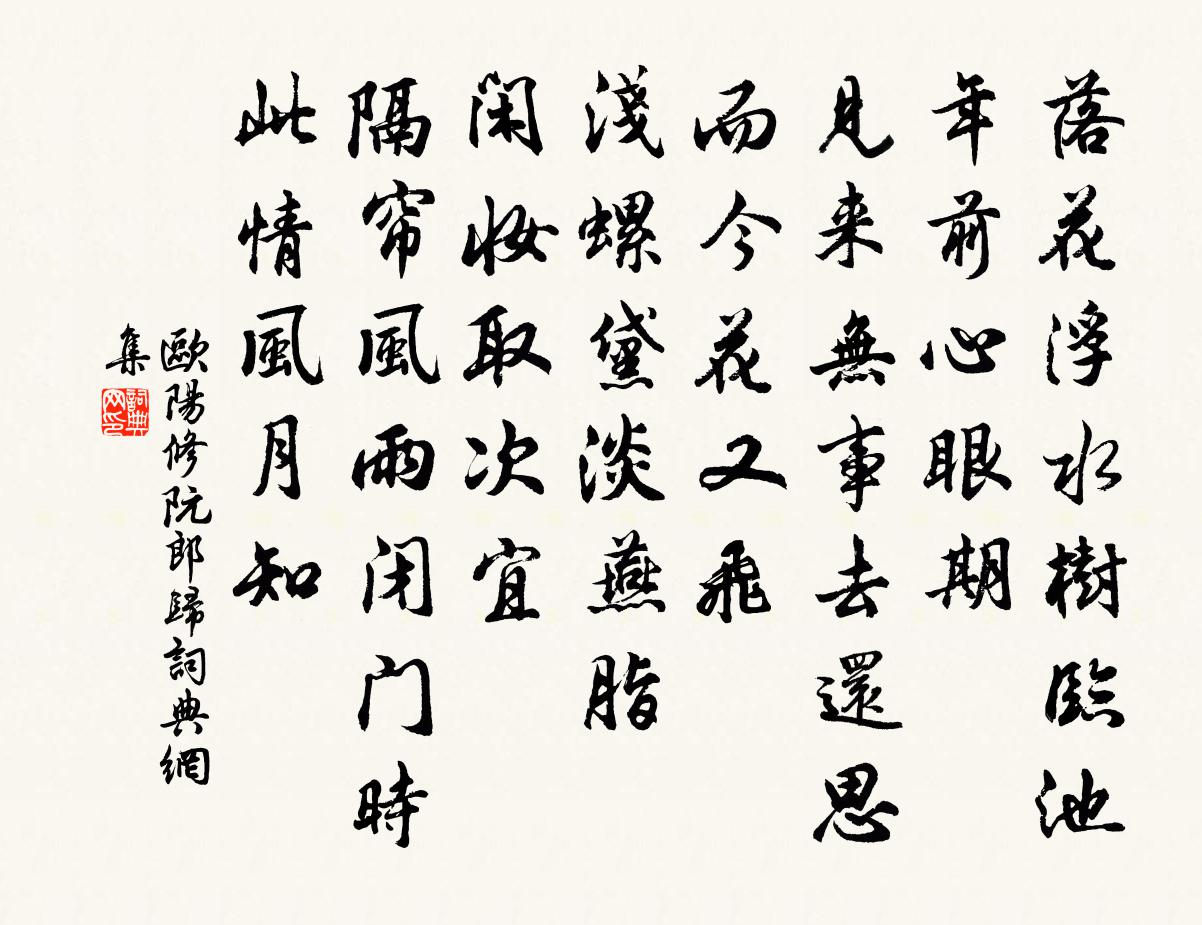 落花浮水樹臨池
年前心眼期
見来無事去還思
而今花又飛
淺螺黛淡燕脂
閑妝取次宜
隔帘風雨闭门時
此情風月知
歐陽修阮郎歸詞典網
集
詞典網印